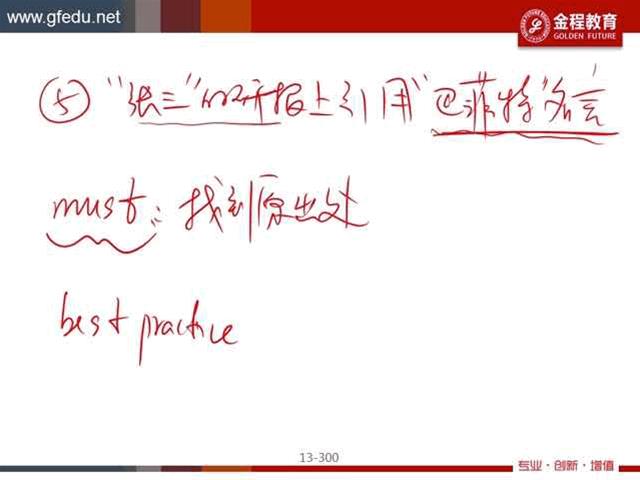 www.gfedu.net
金程教育
GOLDEN FUTURE
⑤ "张三"的研报上引用"巴菲特"名言
must: 找到原出处
best practice
13-300
专业·创新·增值